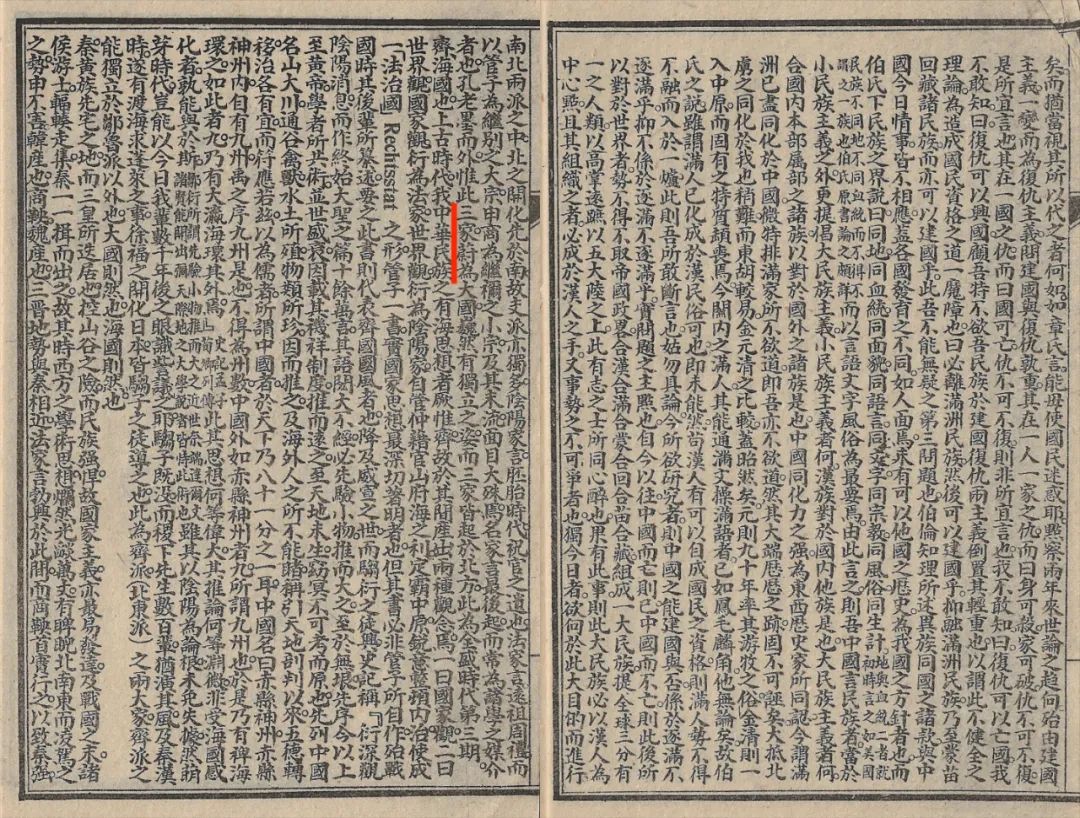 矣而猶當視其所以代之者何如如章氏言能毋使國民迷惑耶默察兩年來世論之趨向殆由建國
主義一變而為復仇主義問建國與復仇孰重其在一人一家之仇而曰身可殺家可破仇不可不復
是所宜言也其在一國之仇而曰國可以亡仇不可不復則非所宜言也我不敢知曰復仇可以亡國我
不敢知曰復仇可以興國顧吾特不欲吾民族於建國復仇兩主義倒置其輕重也以謂此不健全之
理論為造成國民資格之道一魔障也曰必離滿洲民族然後可以建國乎抑融滿洲民族乃至蒙苗
回藏諸民族而亦可以建國乎此吾不能無疑之第三問題也伯倫知理所述異族同國之諸款與中
國今日情事皆不相應蓋各國發音之不同如人面焉未有可以他國之歷史為我國之方針者也而
伯氏下民族之界說曰同地同血統同面貌同語言同文字同宗教同風俗同生計地與血統二者就初時言之如美國
民族不同地不同血統而不得不謂之一族也伯氏原書論之頗詳而以言語文字風俗為最要焉由此言之則吾中國言民族者當於
小民族主義之外更提倡大民族主義小民族主義者何漢族對於國內他族是也大民族主義者何
合國內本部屬部之諸族以對於國外之諸族是也中國同化力之強為東西歷史家所同認今謂滿
洲已盡同化於中國微特排滿家所不欲道即吾亦不欲道然其大端歷歷之跡固不可誣矣大抵北
虜之同化於我也稍難而東胡較易金元清之比較蓋昭然矣元則九十年率其游牧之俗金清則一
入中原而固有之特質頓喪焉今關內之滿人其能通滿文操滿語者已如鳳毛麟角他無論矣故伯
氏之說雖謂滿人已化成於漢民俗可也即未能然苟漢人有可以自成國民之資格則滿人勢不得
不融而入於一爐此則吾所敢斷言也姑勿具論今所欲研究者則中國之能建國與否係於逐滿不
逐滿乎抑不係於逐滿不逐滿乎實問題之主點也自今以往中國而亡則已中國而不亡則此後所
以對於世界者勢不得不取帝國政略合漢合滿合蒙合回合苗合藏組成一大民族提全球三分有
一之人類以高掌遠蹠於五大陸之上此有志之士所同心醉也果有此事則此大民族必以漢人為
中心點且其組織之者必成於漢人之手又事勢之不可爭者也獨今日者欲向於此大目的而進行
南北兩派之中北之開化先於南故支派亦獨多陰陽家言胚胎時代祝官之遺也法家言遠祖周禮而
以管子為繼別之大宗申商為繼禰之小宗及其末流面目大殊焉名家言最後起而常為諸學之媒介
者也孔老墨而外惟此三家蔚為大國巍然有獨立之姿而三家皆起於北方此為全盛時代第三期
齊海國也上古時代我中華民族之有海思想者厥惟齊故於其間產出兩種觀念焉一曰國家觀二曰
世界觀國家觀衍為法家世界觀衍為陰陽家自管仲藉官山府海之利定霸中原銳意整頓內治使成
一「法治國」Rechtsstat之形管子一書實國家思想最深切著明者也但其書必非管子所自作殆戰
國時其後輩所纂述要之此書則代表齊國國風者也降及威宣之世而騶衍之徒興史記稱『衍深觀
陰陽消息而作終始大聖之篇十餘萬言其語閎大不經必先驗小物推而大之至於無垠先序今以上
至黃帝學者所共術並世盛衰因載其禨祥制度推而遠之至天地未生窈冥不可考而原也先列中國
名山大川通谷禽獸水土所殖物類所珍因而推之及海外人之所不能睹稱引天地剖判以來五德轉
移治各有宜而符應若茲以為儒者所謂中國者於天下乃八十一分之一耳中國名曰赤縣神州赤縣
神州內自有九州禹之序九州是也不得為州數中國外如赤縣神州者九所謂九州也於是乃有裨海
環之如此者九乃有大瀛海環其外焉』此其思想何等偉大其推論何等淵微非受海國感
化者孰能與於斯雖其以陰陽為論根未免失據然萌
芽時代豈能以今日我輩數千年後之眼識訾議之耶騶子既沒而稷下先生數百輩猶演其風及秦漢
時遂有渡海求蓬萊之事徐福之開化日本皆騶子之徒導之也此為齊派(北東派)之兩大家齊派之
能獨立於鄒魯派以外也大國則然也海國則然也
秦黃族先宅之地而三皇所迭居也控山谷之險而民族強悍故國家主義亦最易發達及戰國之末諸
侯游士輻輳走集秦一一揖而出之故其時西方之學術思想爛然光燄萬丈有睥睨北南東而凌駕之
之勢申不害韓產也商鞅魏產也三晉地勢與秦相近法家言勃興於此間而商鞅首實行之以致秦強